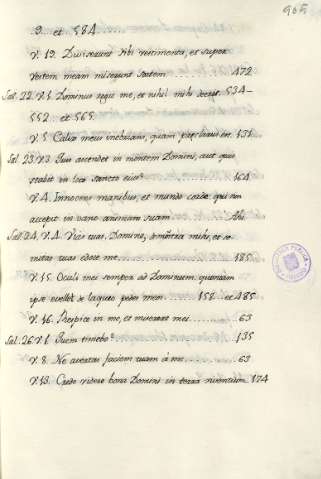 965
9. et 584.
V. 19. Diviserunt sibi vestimenta, et super
vestem meam miserunt sortem 472
Sal. 22. V. 1. Dominus regit me, et nihil mihi deerit. 534-
552 et 565.
V. 5. Calix meus inebrians, quam præclarus est. 571
Sal. 23. V. 3. Quis ascendet in montem Domini, aut quis
stabit in loco sancto eius? 164
V. 4. Innocens manibus, et mundo corde, qui non
accepit in vano animam suam
Sal. 24. V. 4. Vias tuas, Domine, demonstra mihi, et se-
mitas tuas edoce me. 185
V. 15. Oculi mei semper ad Dominum, quoniam
ipse evellet de laqueo pedes meos 158 et 485
V. 16. Respice in me, et miserere mei 63
Sal. 26. V. 1. Quem timebo? 135
V. 8. Ne avertas faciem tuam á me 63
V. 13. Credo videre bona Domini in terra viventium. 174